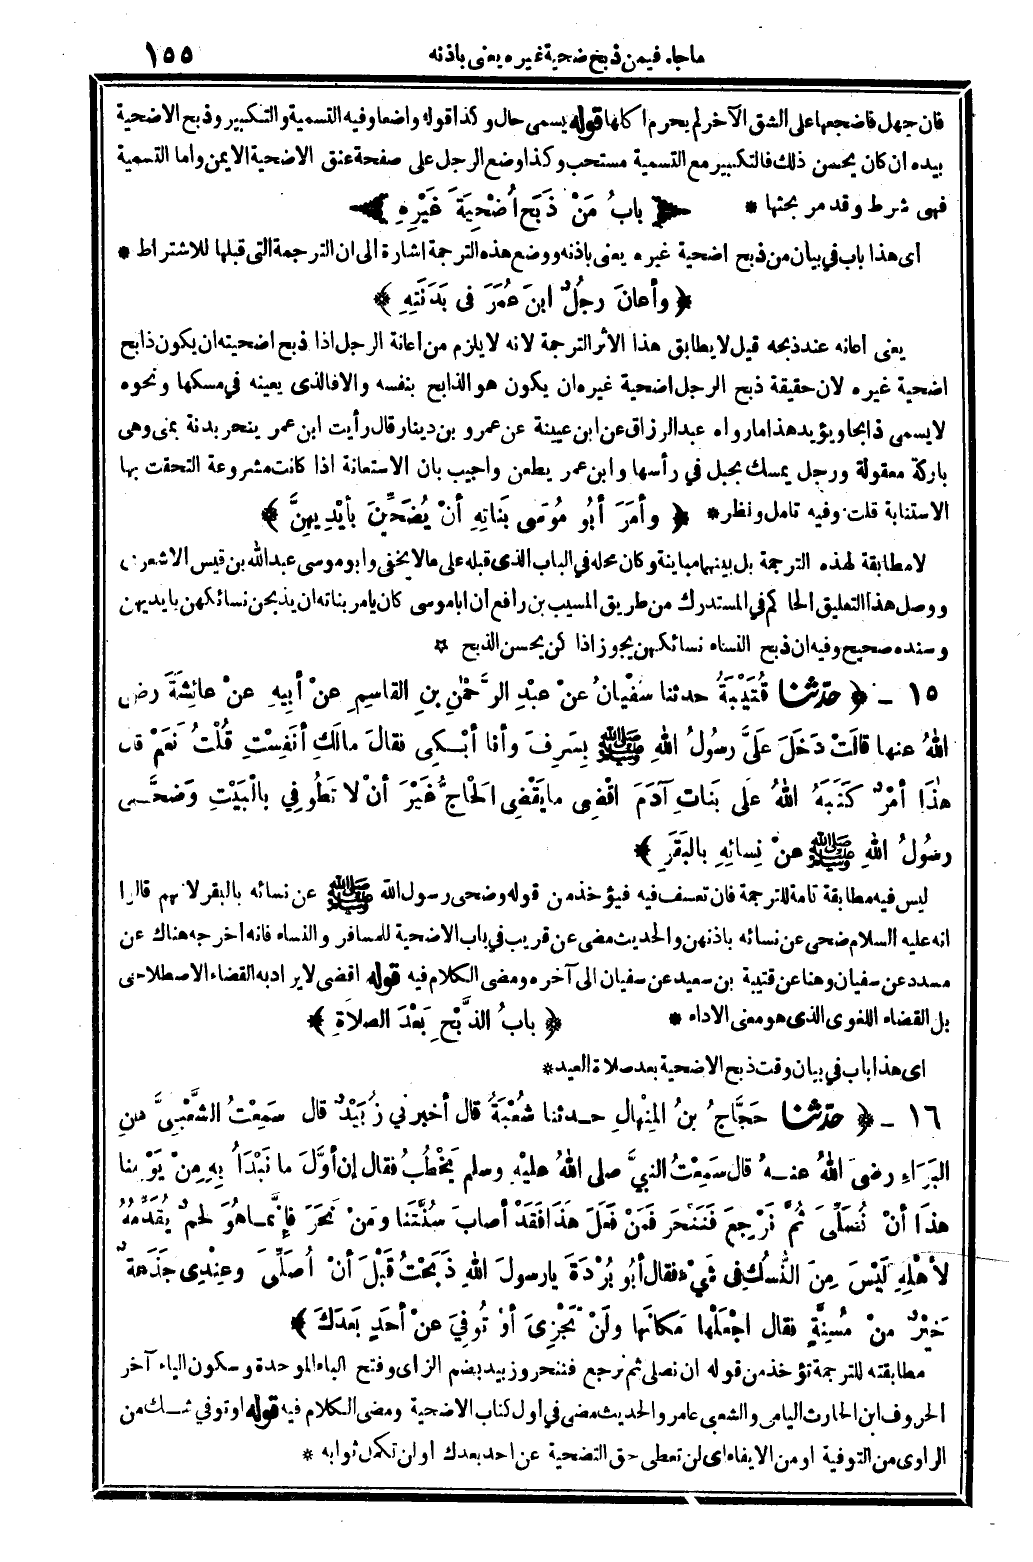 ماجاء فيمن ذبح ضحية غيره يعنى باذنه ١٥٥
فان جهل فاضجعها على الشق الآخر لم يحرم اكلها قوله يسمى حال وكذا قوله واضعا وفيه التسمية والتكبير وذبح الاضحية
بيده ان كان يحسن ذلك فالتكبير مع التسمية مستحب وكذا وضع الرجل على صفحة عنق الاضحية الايمن واما التسمية
فهى شرط وقد مر بحثها * ﴿ بابُ مَنْ ذَبَحَ أُضْحِيَةَ غَيْرِهِ ﴾
أى هذا باب في بيان من ذبح اضحية غيره يعنى باذنه ووضع هذه الترجمة اشارة الى ان الترجمة التى قبلها للاشتراط *
﴿ وأعانَ رجُلٌ ابنَ عُمَرَ فى بَدَنَتِهِ ﴾
يعنى اعانه عند ذبحه قيل لا يطابق هذا الأثر الترجمة لانه لا يلزم من اعانة الرجل اذا ذبح اضحيته ان يكون ذابح
اضحية غيره لان حقيقة ذبح الرجل اضحية غيره ان يكون هو الذابح بنفسه والا فالذى يعينه في مسكها ونحوه
لا يسمى ذابحا ويؤيد هذا ما رواه عبد الرزاق عن ابن عيينة عن عمرو بن دينار قال رأيت ابن عمر ينحر بدنة بمنى وهى
باركة معقولة ورجل يمسك بحبل في رأسها وابن عمر يطعن واجيب بان الاستعانة اذا كانت مشروعة التحقت بها
الاستنابة قلت وفيه تامل ونظر * ﴿ وأمَرَ أبُو مُوسَى بَناتِهِ أنْ يُضَحِّينَ بأيْدِيهِنَّ ﴾
لا مطابقة لهذه الترجمة بل بينهما مباينة وكان محله في الباب الذى قبله على مالا يخفى وابو موسى عبد الله بن قيس الاشعرى
ووصل هذا التعليق الحاكم في المستدرك من طريق المسيب بن رافع أن اباموسى كان يامر بناته ان يذبحن نسائكهن بايديهن
وسنده صحيح وفيه ان ذبح النساء نسائكهن يجوز اذا كن يحسن الذبح *
١٥ - ﴿ حدّثنا قُتَيْبَةُ حدثنا سُفْيانُ عنْ عبْدِ الرَّحْمٰنِ بنِ القاسِمِ عنْ أبِيهِ عنْ عائِشَةَ رضى
اللهُ عنها قالَتْ دَخَلَ عَلَىَّ رسُولُ اللهِ ﷺ بِسَرِفَ وأنا أبْكِى فقالَ مالَكِ أنَفِسْتِ قُلْتُ نَعَمْ قال
هٰذَا أمْرٌ كَتَبَهُ اللهُ علَى بَناتِ آدَمَ اقْضِى ما يَقْضِى الحاجُّ غَيْرَ أنْ لا تَطُوفِي بالْبَيْتِ وَضَحَّى
رسُولُ اللهِ ﷺ عنْ نِسائِهِ بالبَقَرِ ﴾
ليس فيه مطابقة تامة للترجمة فان تعسف فيه فيؤخذ من قوله وضحى رسول الله ﷺ عن نسائه بالبقر لانهم قالوا
انه عليه السلام ضحى عن نسائه باذنهن والحديث مضى عن قريب في باب الاضحية للمسافر والنساء فانه أخرجه هناك عن
مسدد عن سفيان وهنا عن قتيبة بن سعيد عن سفيان الى آخره ومضى الكلام فيه قوله اقضى لا يراد به القضاء الاصطلاحى
بل القضاء اللغوى الذى هو معنى الاداء * ﴿ بابُ الذَّبْحِ بَعْدَ الصلاَةِ ﴾
اى هذا باب في بيان وقت ذبح الاضحية بعد صلاة العيد *
١٦ - ﴿ حدّثنا حَجَّاجُ بنُ المِنْهالِ حدثنا شُعْبَةُ قال أخبرني زُبَيْدٌ قال سَمِعْتُ الشَّعْبِىَّ عنِ
البَرَاءِ رضى اللهُ عنهُ قال سَمِعْتُ النبىَّ صلى اللهُ عليْهِ وسلم يَخْطُبُ فقال إن أوَّلَ ما نَبْدَأُ بِهِ مِنْ يَوْمِنا
هذَا أنْ نُصَلِّىَ ثُمَّ نَرْجِعَ فَنَنْحَرَ فَمَنْ فَعَلَ هذَا فَقَدْ أصابَ سُنَّتَنا ومَنْ نَحَرَ فإنَّما هُوَ لَحمٌ يُقَدِّمُهُ
لأهْلِهِ لَيْسَ مِنَ النُّسُكِ فى شَىْءٍ فقال أبُو بُرْدَةَ يارسولَ اللهِ ذَبَحْتُ قَبْلَ أنْ أُصَلِّىَ وعِنْدِى جَذَعةٌ
خَيْرٌ منْ مُسِنَّةٍ فقال اجْعَلْها مَكانَها ولَنْ تَجْزِىَ أوْ تُوفِيَ عنْ أحَدٍ بَعدَكَ ﴾
مطابقته للترجمة تؤخذ من قوله ان نصلى ثم نرجع فننحر وزبيد بضم الزاى وفتح الباء الموحدة وسكون الياء آخر
الحروف ابن الحارث اليامى والشعبى عامر والحديث مضى في اول كتاب الاضحية ومضى الكلام فيه قوله اوتوفي شك من
الراوى من التوفية او من الايفاء اى لن تعطى حق التضحية عن احد بعدك او لن تكمل ثوابه *